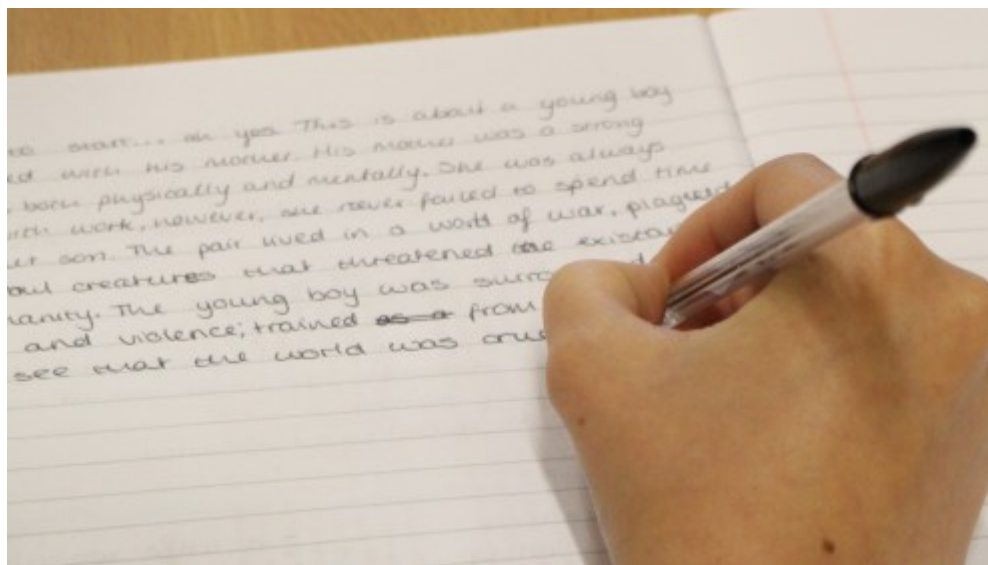 to start... ah yes This is about a young boy
ed with his mother. His mother was a strong
born physically and mentally. She was always
with work, however, she never failed to spend time
er son. The pair lived in a world of war, plagued
oul creatures that threatened the existan
anity. The young boy was surro
and violence; trained as a from
see that the world was crue